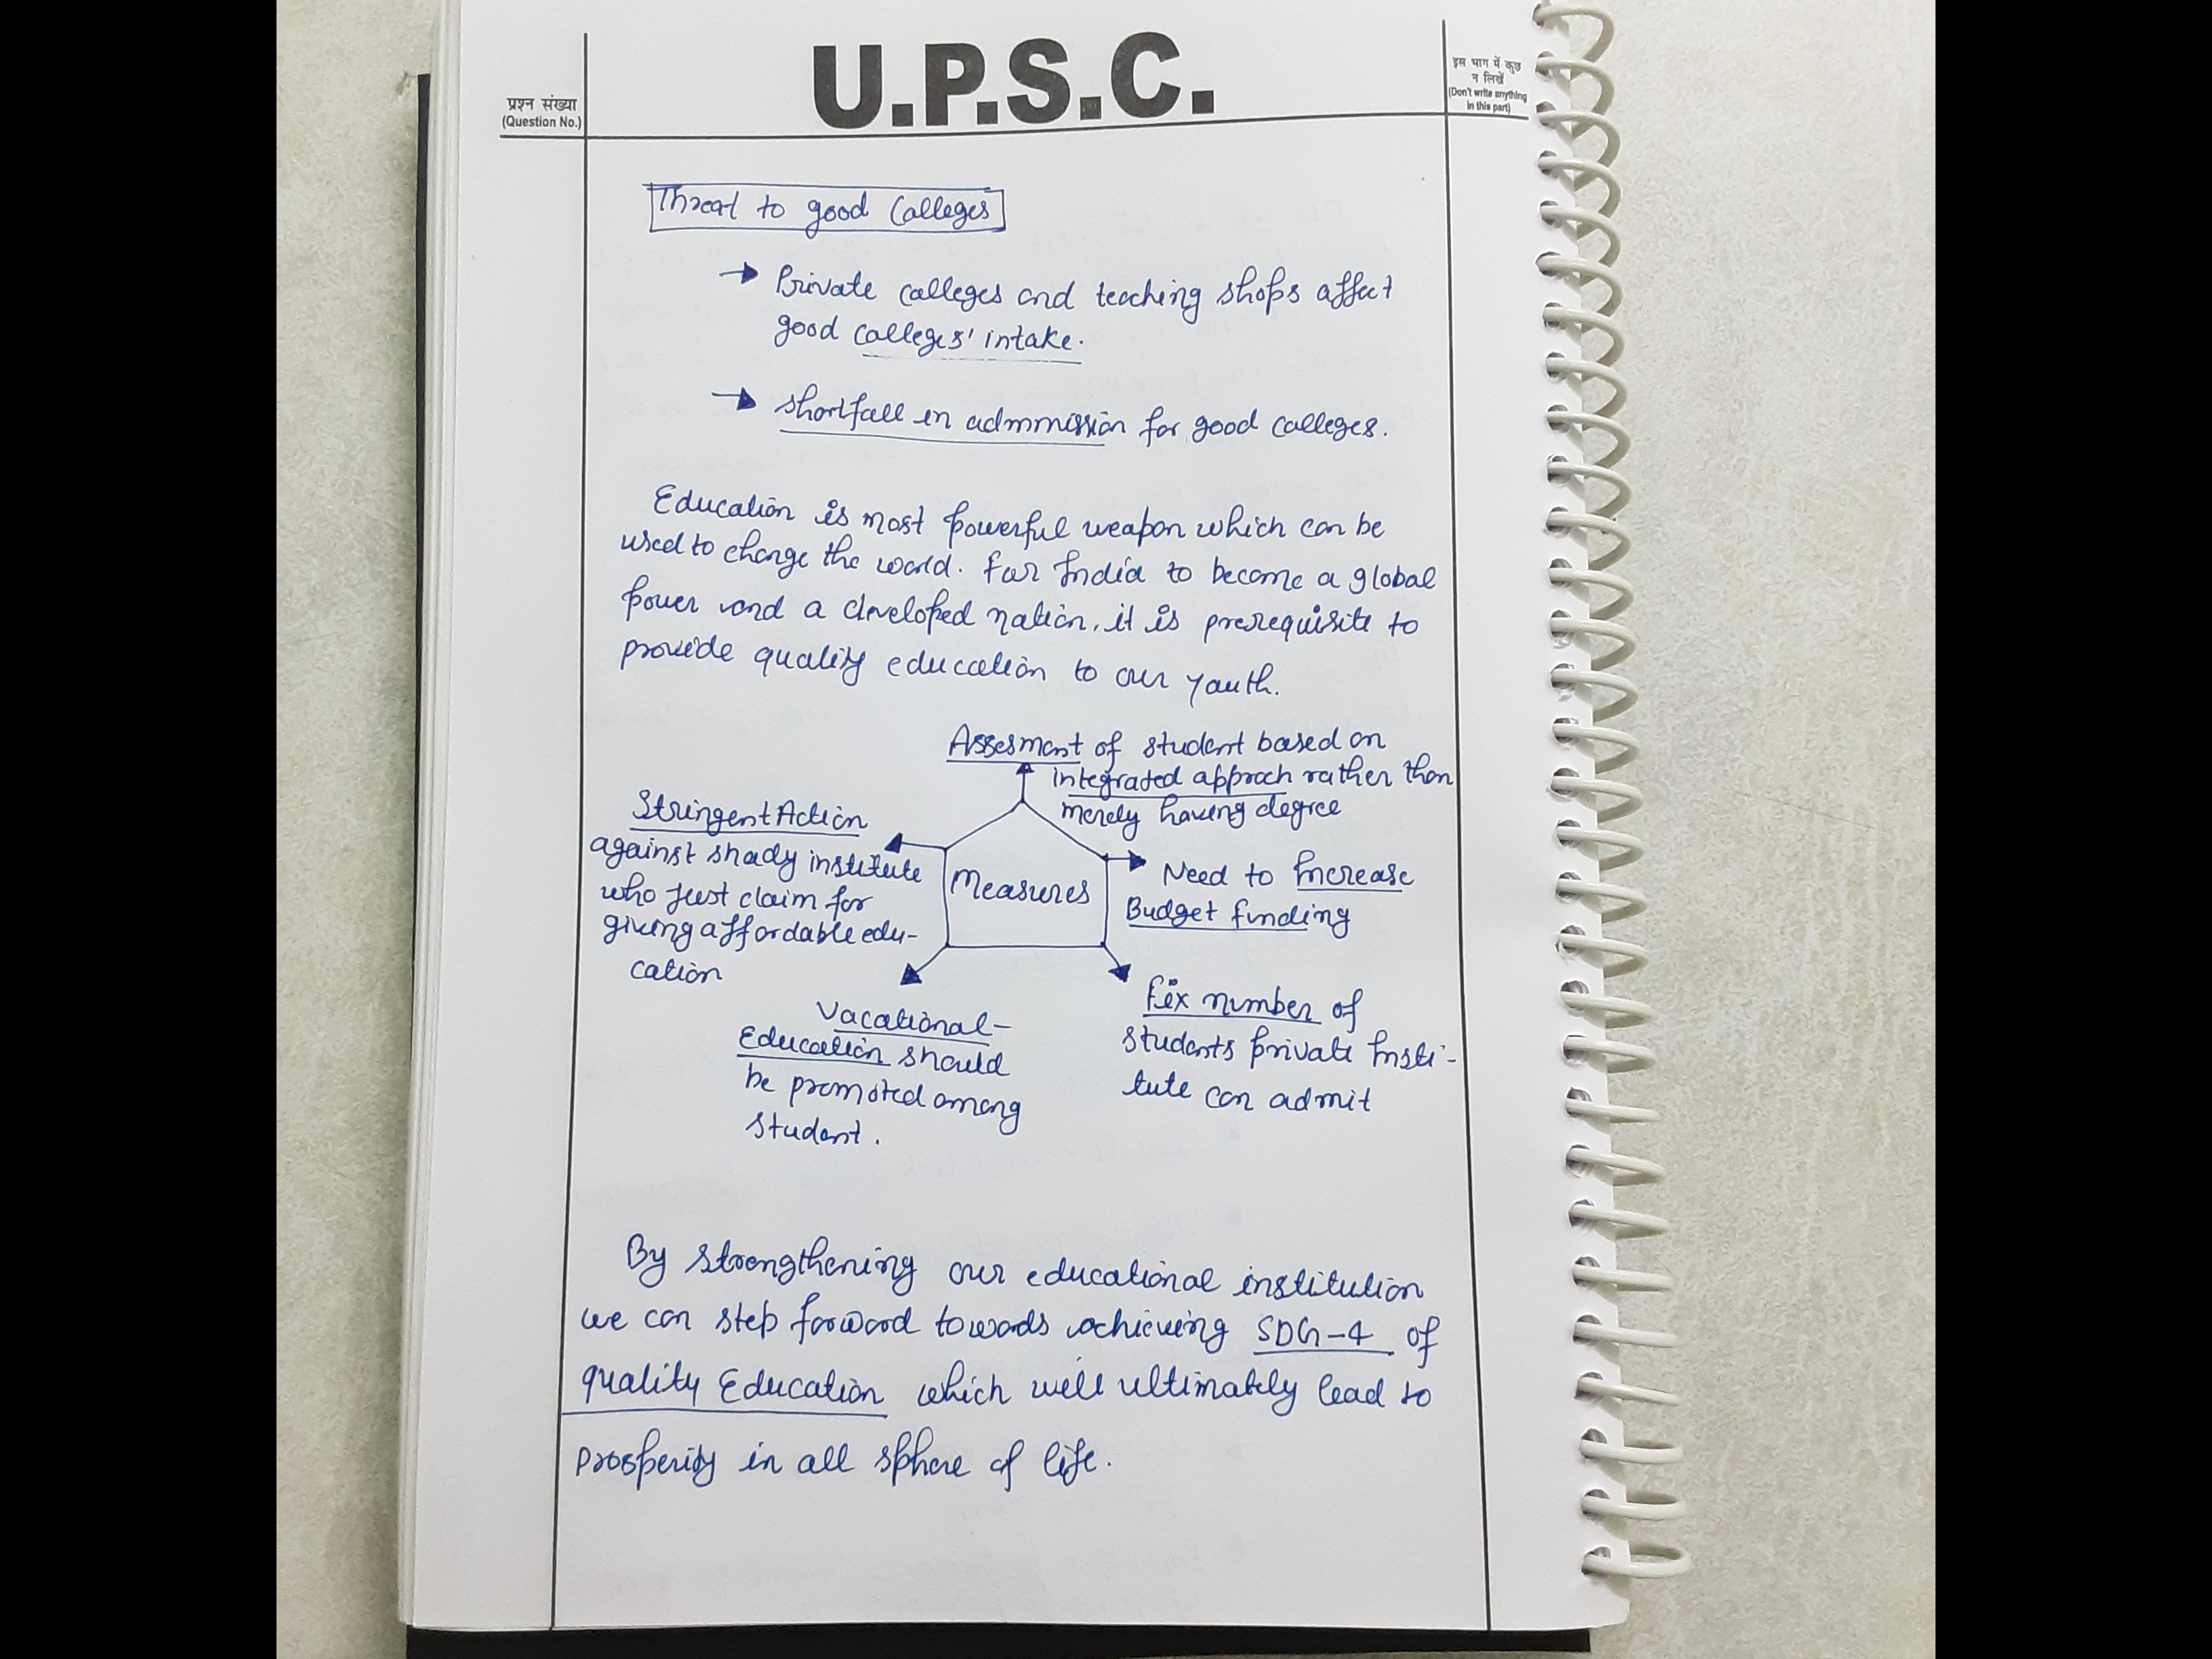 U.P.S.C.
प्रश्न संख्या
(Question No.)
इस भाग में कुछ
न लिखें
(Don't write anything
in this part)
Threat to good Colleges
→ Private colleges and teaching shops affect
good colleges' intake.
→ shortfall in admmission for good colleges.
Education is most powerful weapon which can be
used to change the world. For India to become a global
power and a developed nation, it is prerequisite to
provide quality education to our youth.
Assesment of student based on
integrated approch rather than
merely having degree
Stringent Action
against shady institute
who just claim for
giving affordable edu-
cation
Measures
Need to Increase
Budget funding
Vacational-
Education should
be promoted among
student.
Fix number of
students private Insti-
tute can admit
By strengthening our educational institution
we can step forward towards achieving SDG-4 of
quality Education which will ultimately lead to
prosperity in all sphere of life.